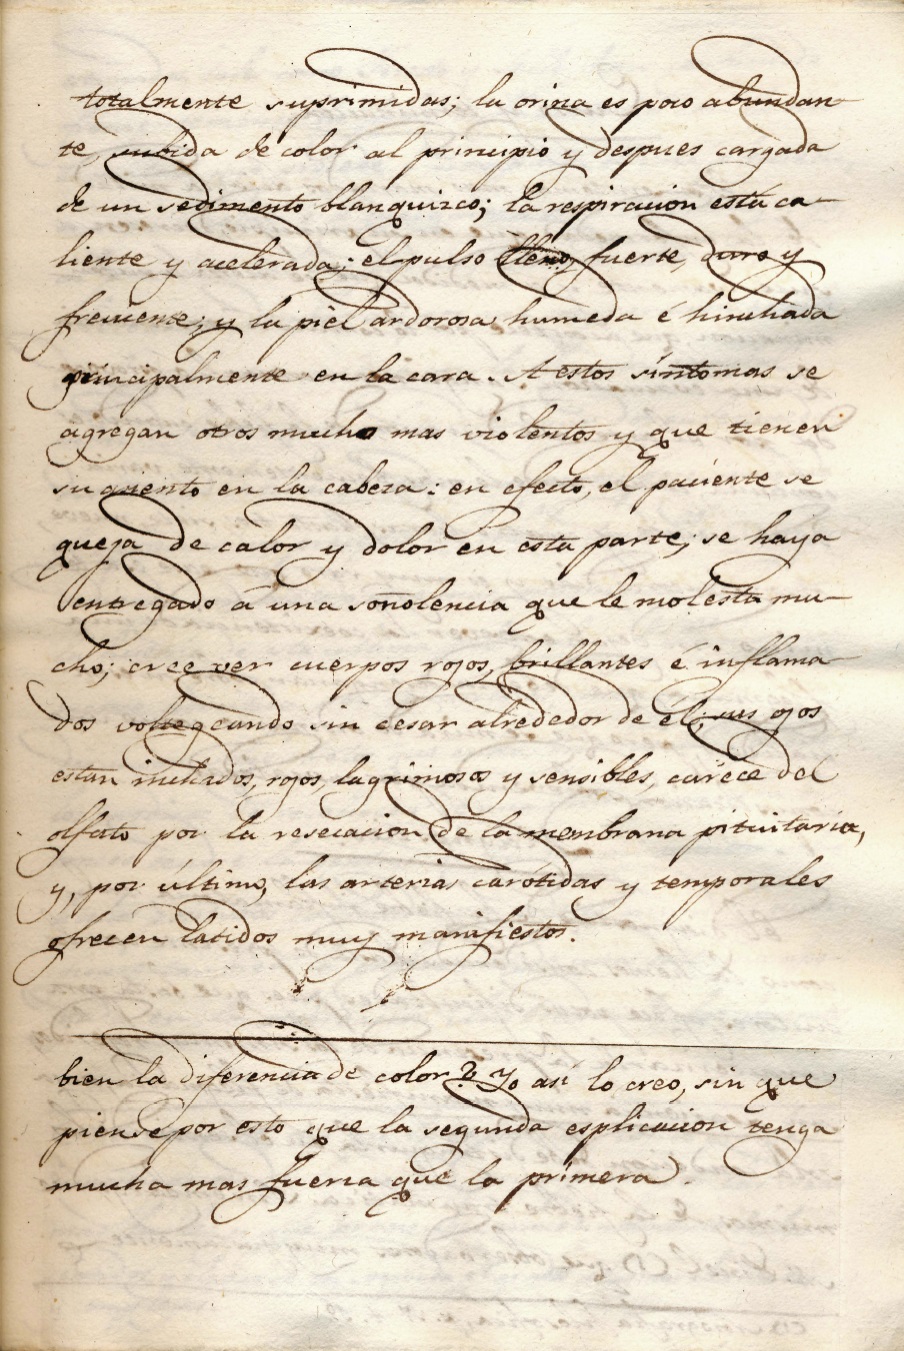 totalmente suprimidas; la orina es poco abundan-
te, subida de color al principio y despues cargada
de un sedimento blanquizco; la respiracion está ca-
liente y acelerada; el pulso lleno, fuerte, duro y
frecuente; y la piel ardorosa humeda é hinchada
principalmente en la cara. A estos síntomas se
agregan otros mucho mas violentos y que tienen
su asiento en la cabeza: en efecto, el paciente se
queja de calor y dolor en esta parte; se haya
entregado á una soñolencia que le molesta mu-
cho; cree ver cuerpos rojos, brillantes é inflama-
dos voltegeando sin cesar alrededor de él; sus ojos
estan inchados, rojos, lagrimosos y sensibles, carece del
olfato por la resecacion de la membrana pituitaria,
y, por último, las arterias carótidas y temporales
ofrecen latidos muy manifiestos.
bien la diferencia de color? Yo así lo creo, sin que
piense por esto que la segunda esplicacion tenga
mucha mas fuerza que la primera.